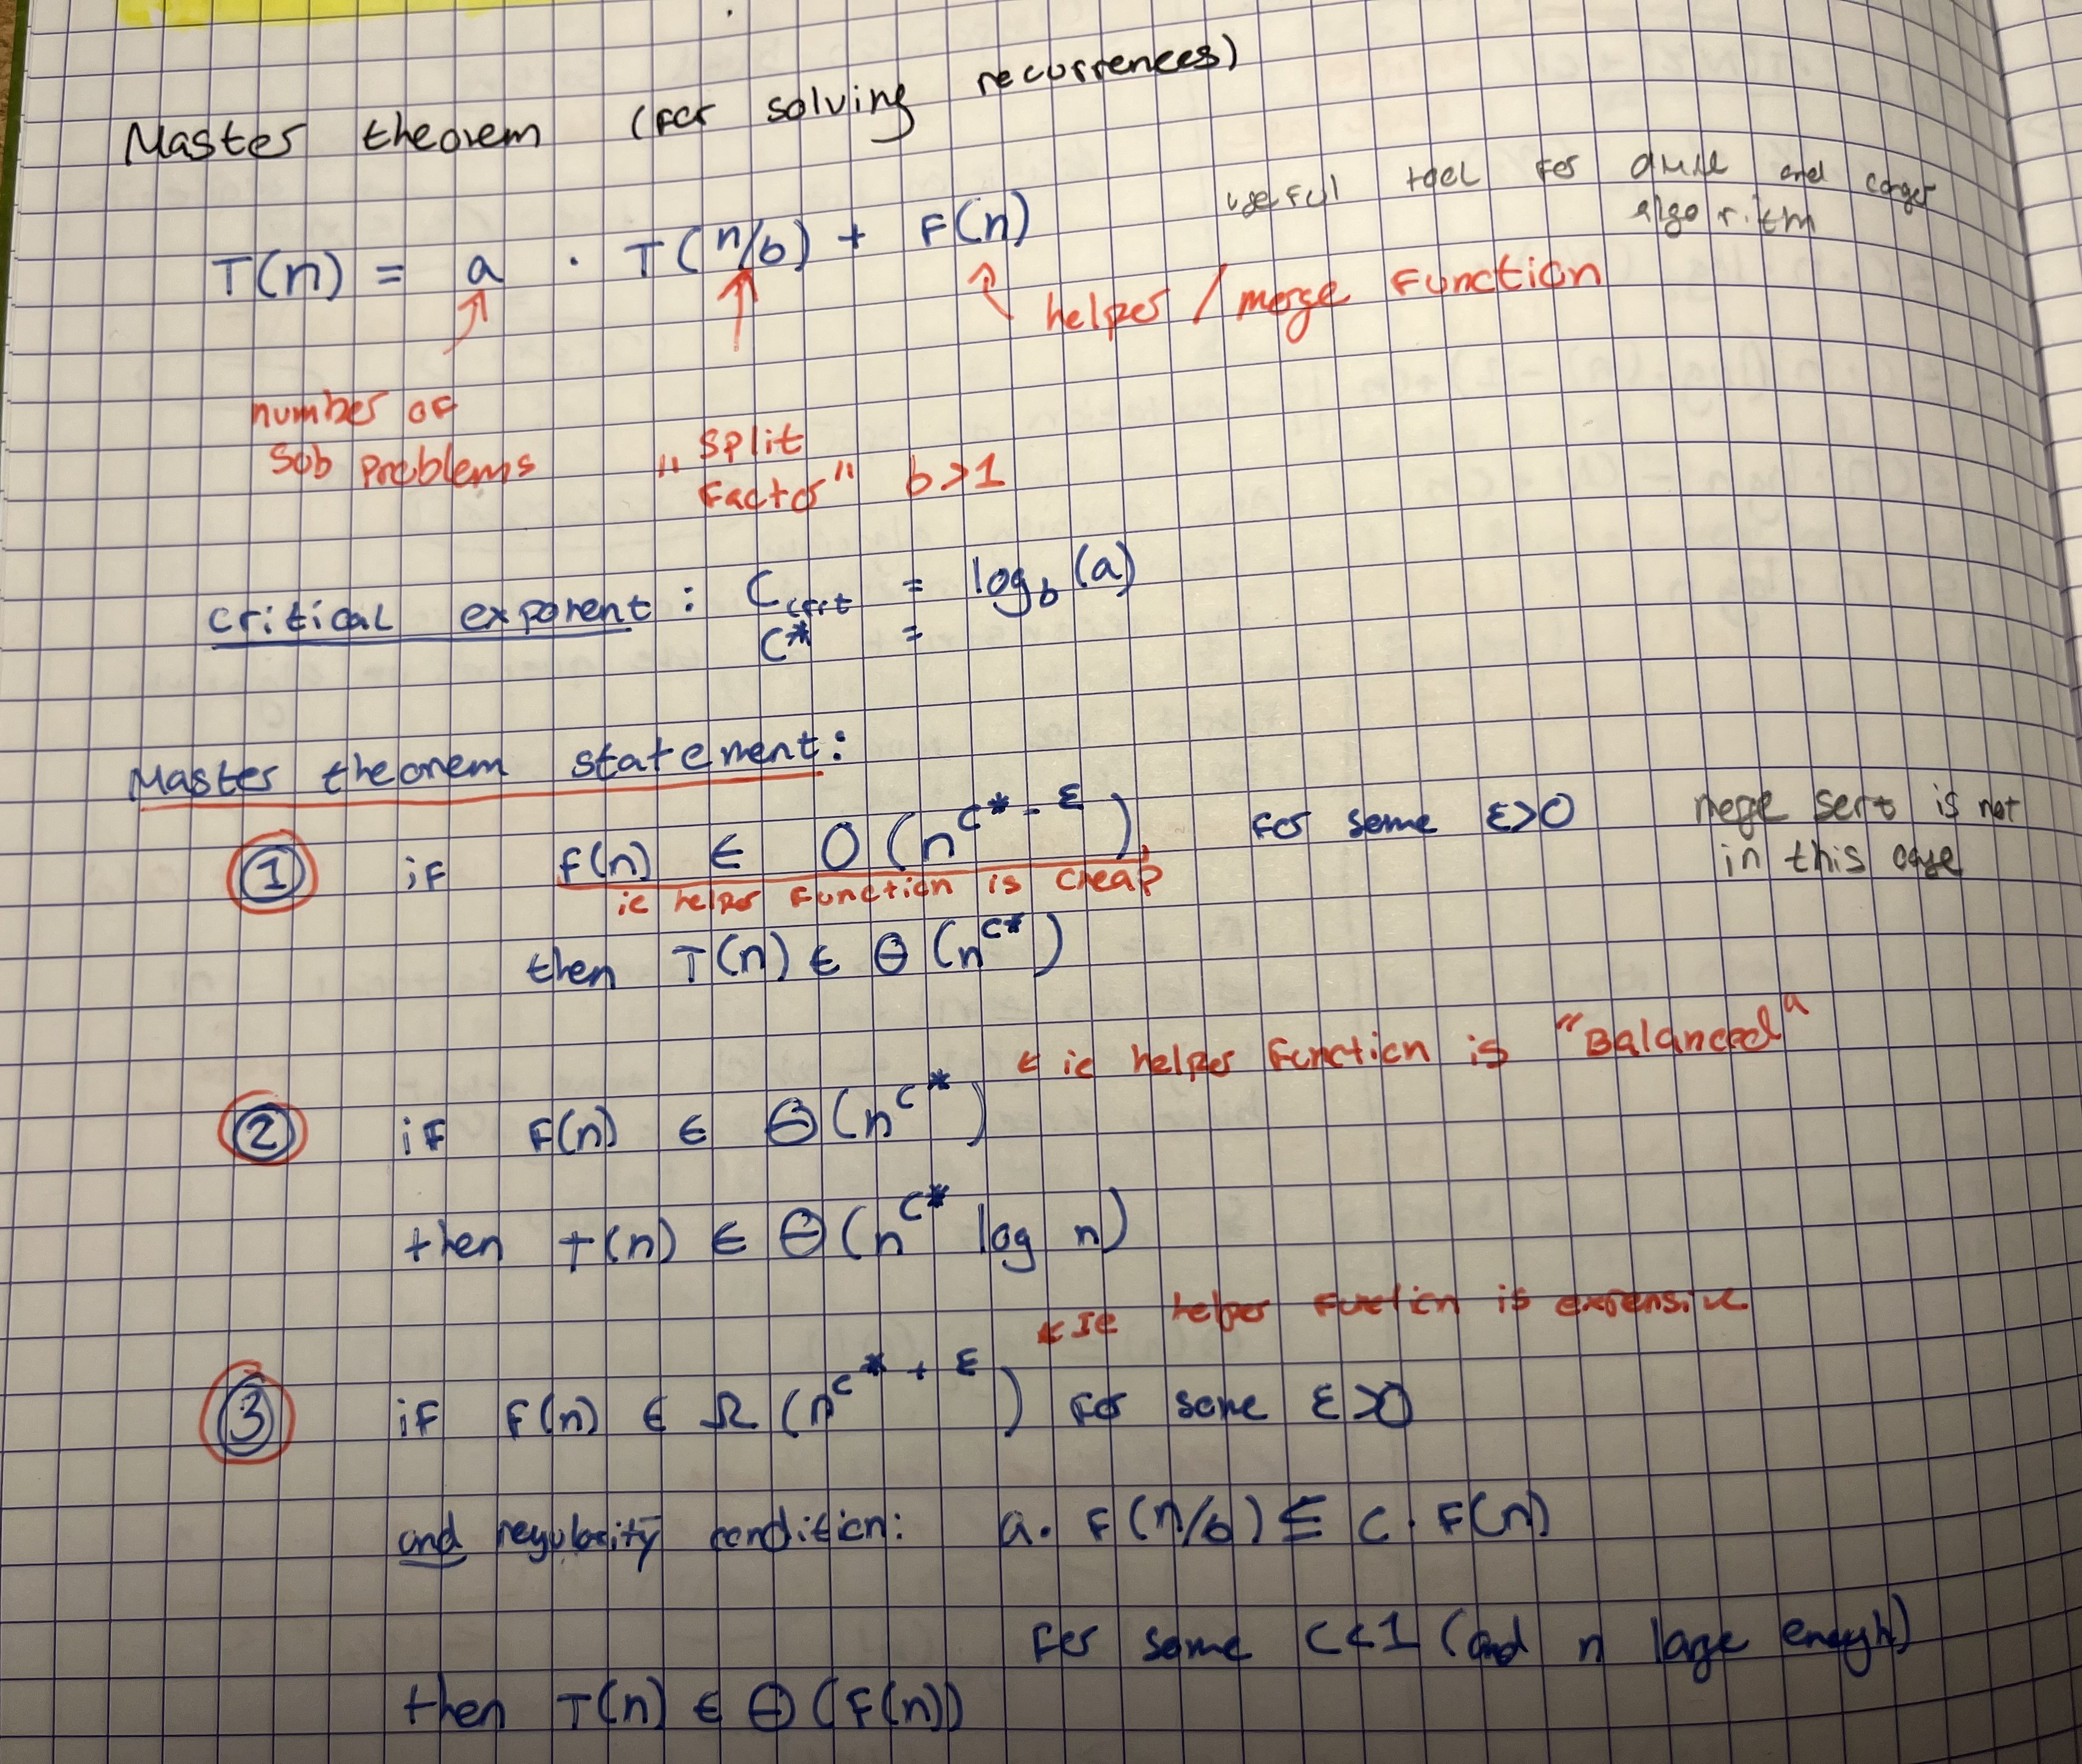 Master theorem (for solving recurrences)
useful tool for divide and conquer
algorithm
T(n) = a · T(n/b) + F(n)
helper / merge function
number of
Sub problems
"Split
Factor" b>1
critical exponent: C_crit = log_b (a)
C* =
Master theorem statement:
① if f(n) ∈ O(n^{C* - ε}) for some ε>0
merge sort is not
in this case
ie helper function is cheap
then T(n) ∈ Θ(n^{C*})
← ie helper function is "Balanced"
② if F(n) ∈ Θ(n^{C*})
then T(n) ∈ Θ(n^{C*} log n)
← Ie helper function is expensive
③ if F(n) ∈ Ω(n^{C* + ε}) for some ε>0
and regularity condition: a. F(n/b) ≤ C · F(n)
for some C<1 (and n large enough)
then T(n) ∈ Θ(F(n))